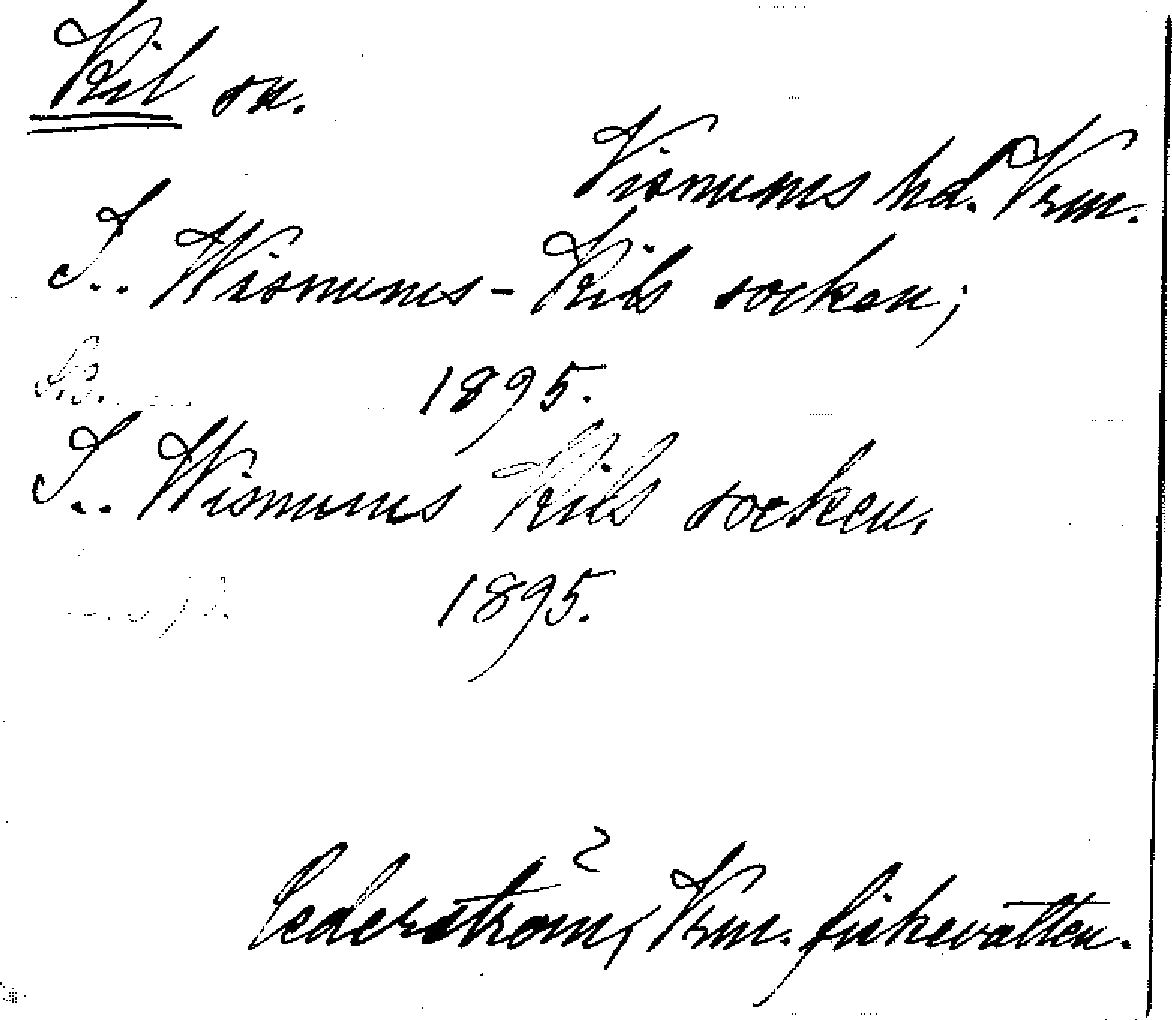 Kil sn.
Visnums hd. Vrm.
S.. Wisnums-Kils socken;
1895.
S.. Wisnums Kils socken.
1895.
Cederström, Vrm. fiskevatten.